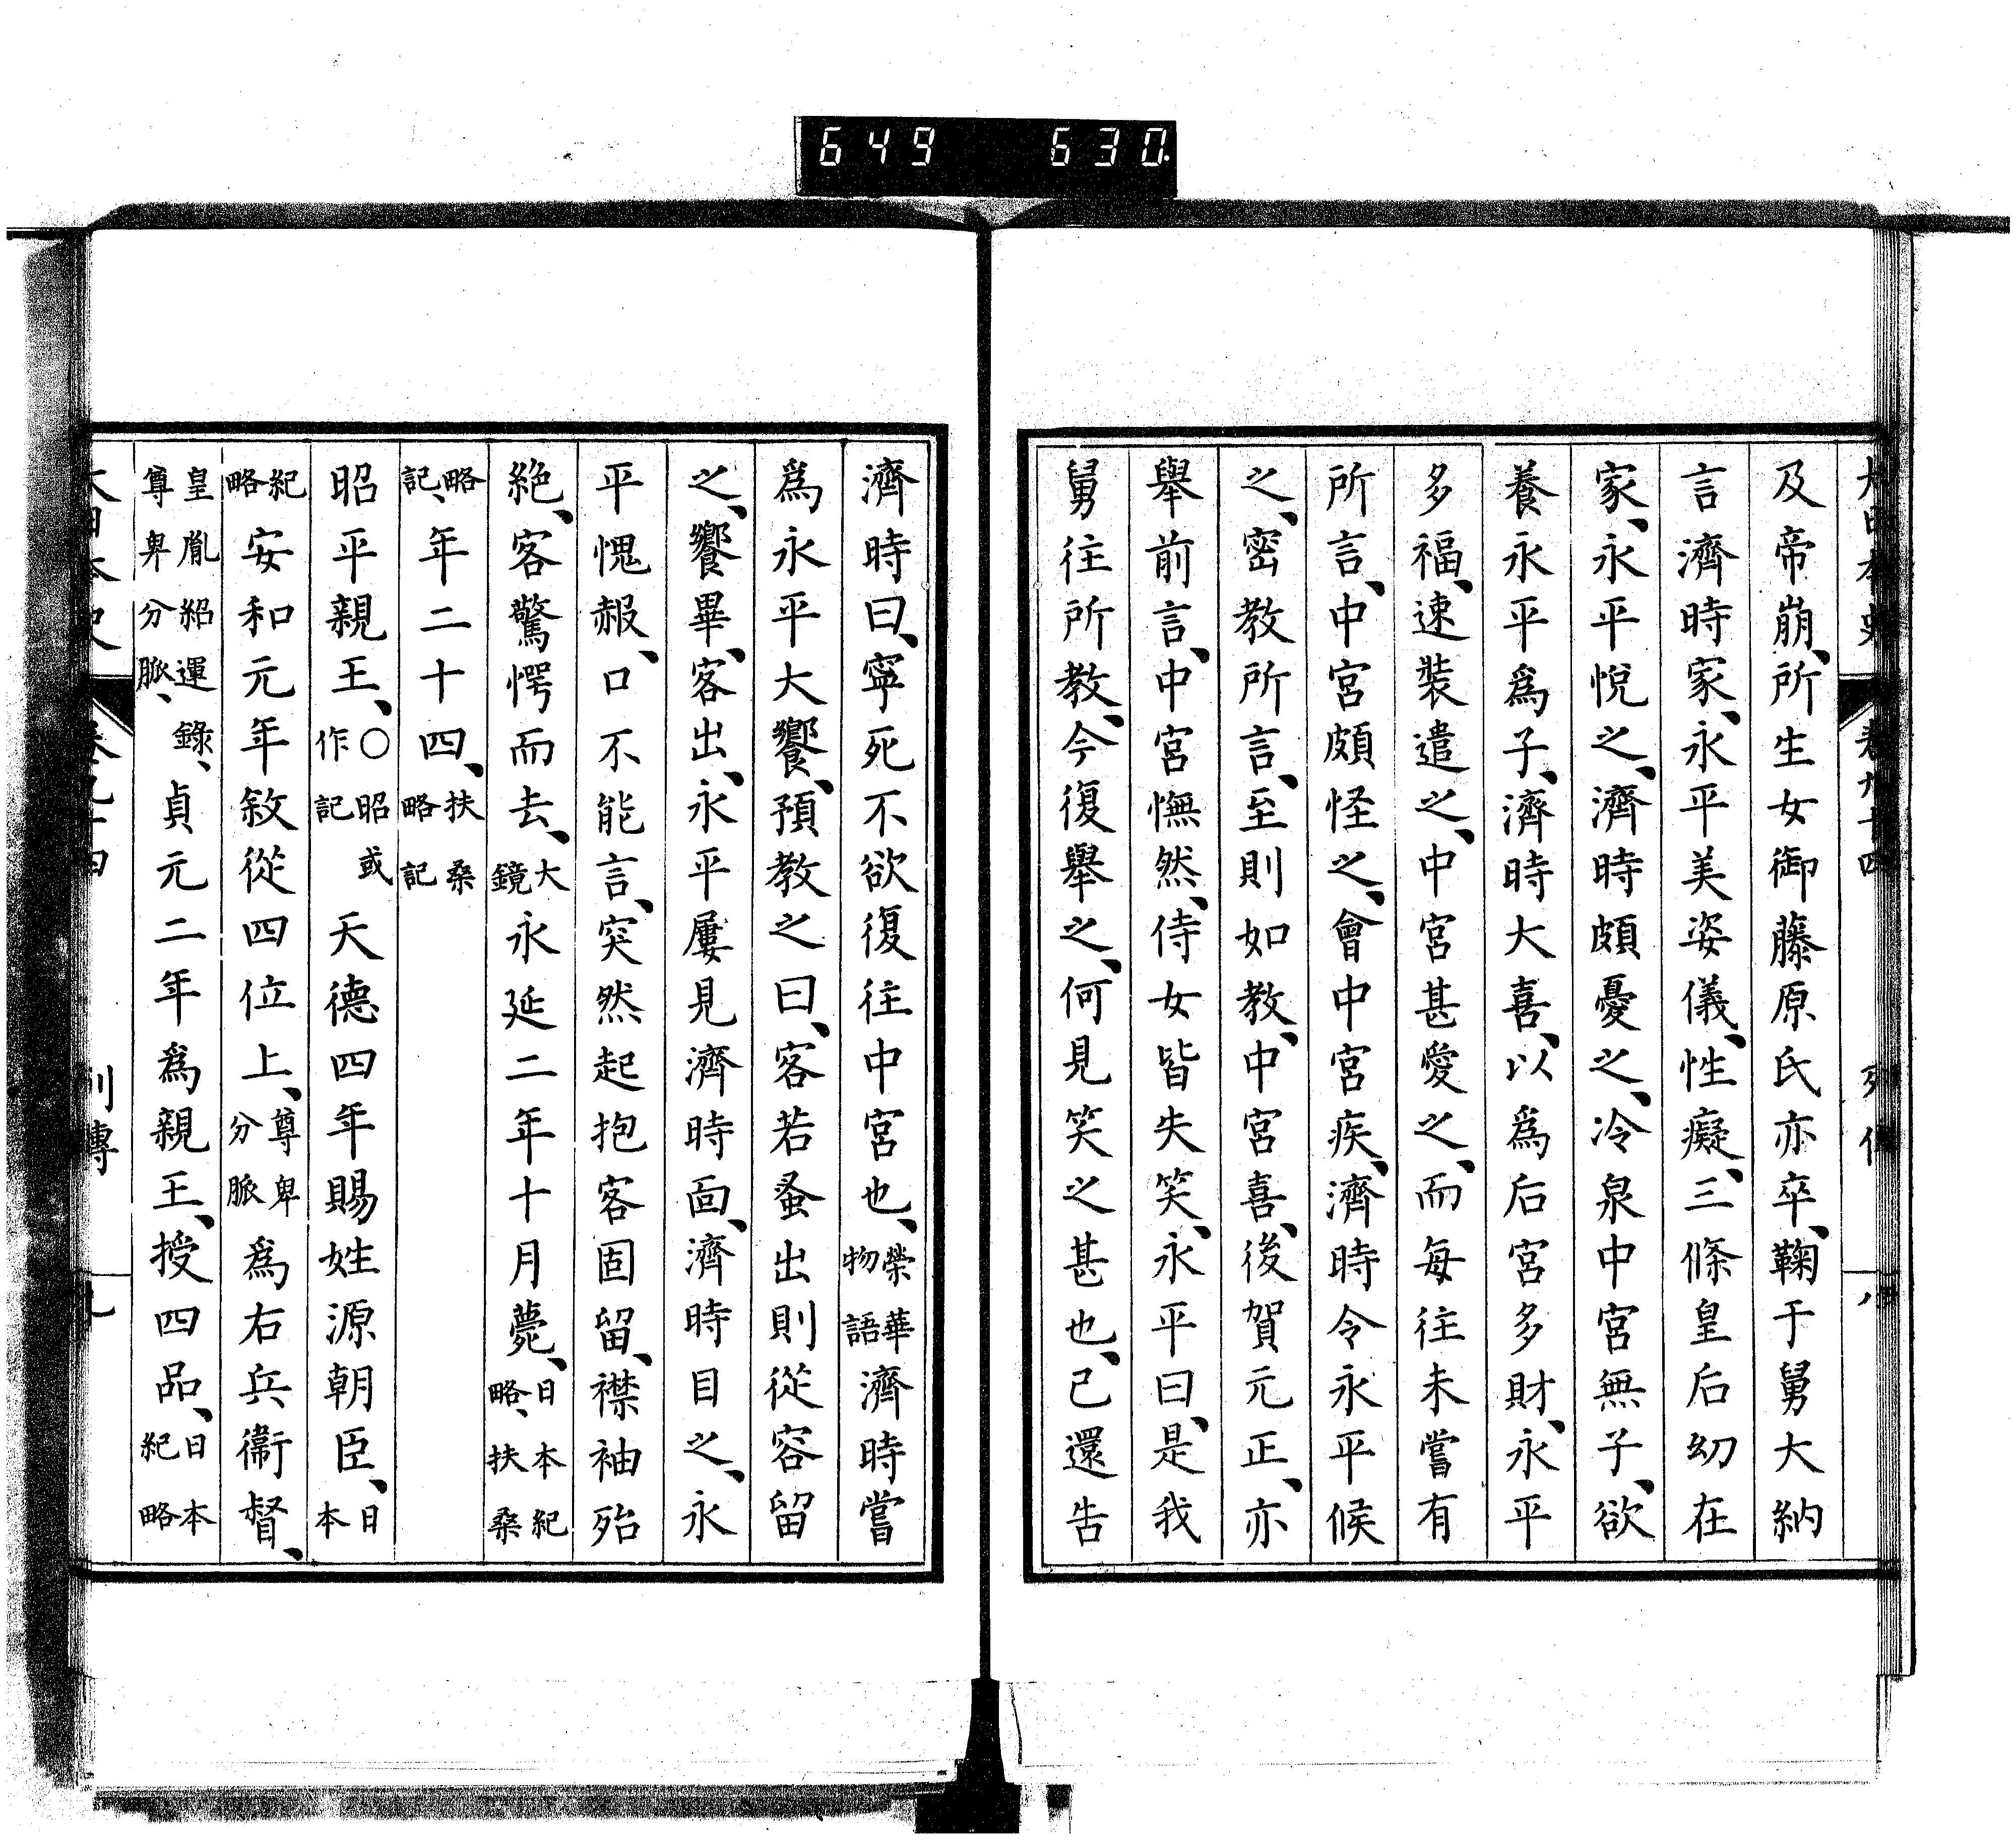 649 630
大日本史 卷九十四 列傳 八
及帝崩、所生女御藤原氏亦卒、鞠于舅大納
言濟時家、永平美姿儀、性癡、三條皇后幼在
家、永平悅之、濟時頗憂之、冷泉中宮無子、欲
養永平爲子、濟時大喜、以爲后宮多財、永平
多福、速裝遣之、中宮甚愛之、而每往未嘗有
所言、中宮頗怪之、會中宮疾、濟時令永平候
之、密教所言、至則如教、中宮喜、後賀元正、亦
舉前言、中宮憮然、侍女皆失笑、永平曰、是我
舅往所教、今復舉之、何見笑之甚也、已還告
濟時曰、寧死不欲復往中宮也、榮華物語濟時嘗
爲永平大饗、預教之曰、客若蚤出則從容留
之、饗畢、客出、永平屢見濟時面、濟時目之、永
平愧赧、口不能言、突然起抱客固留、襟袖殆
絶、客驚愕而去、大鏡永延二年十月薨、日本紀略、扶桑
略記、年二十四、扶桑略記
昭平親王、〇昭或作記天德四年賜姓源朝臣、日本
紀略安和元年敘從四位上、尊卑分脈爲右兵衞督、
皇胤紹運錄、尊卑分脈、貞元二年爲親王、授四品、日本紀略
大日本史 卷九十四 列傳 九